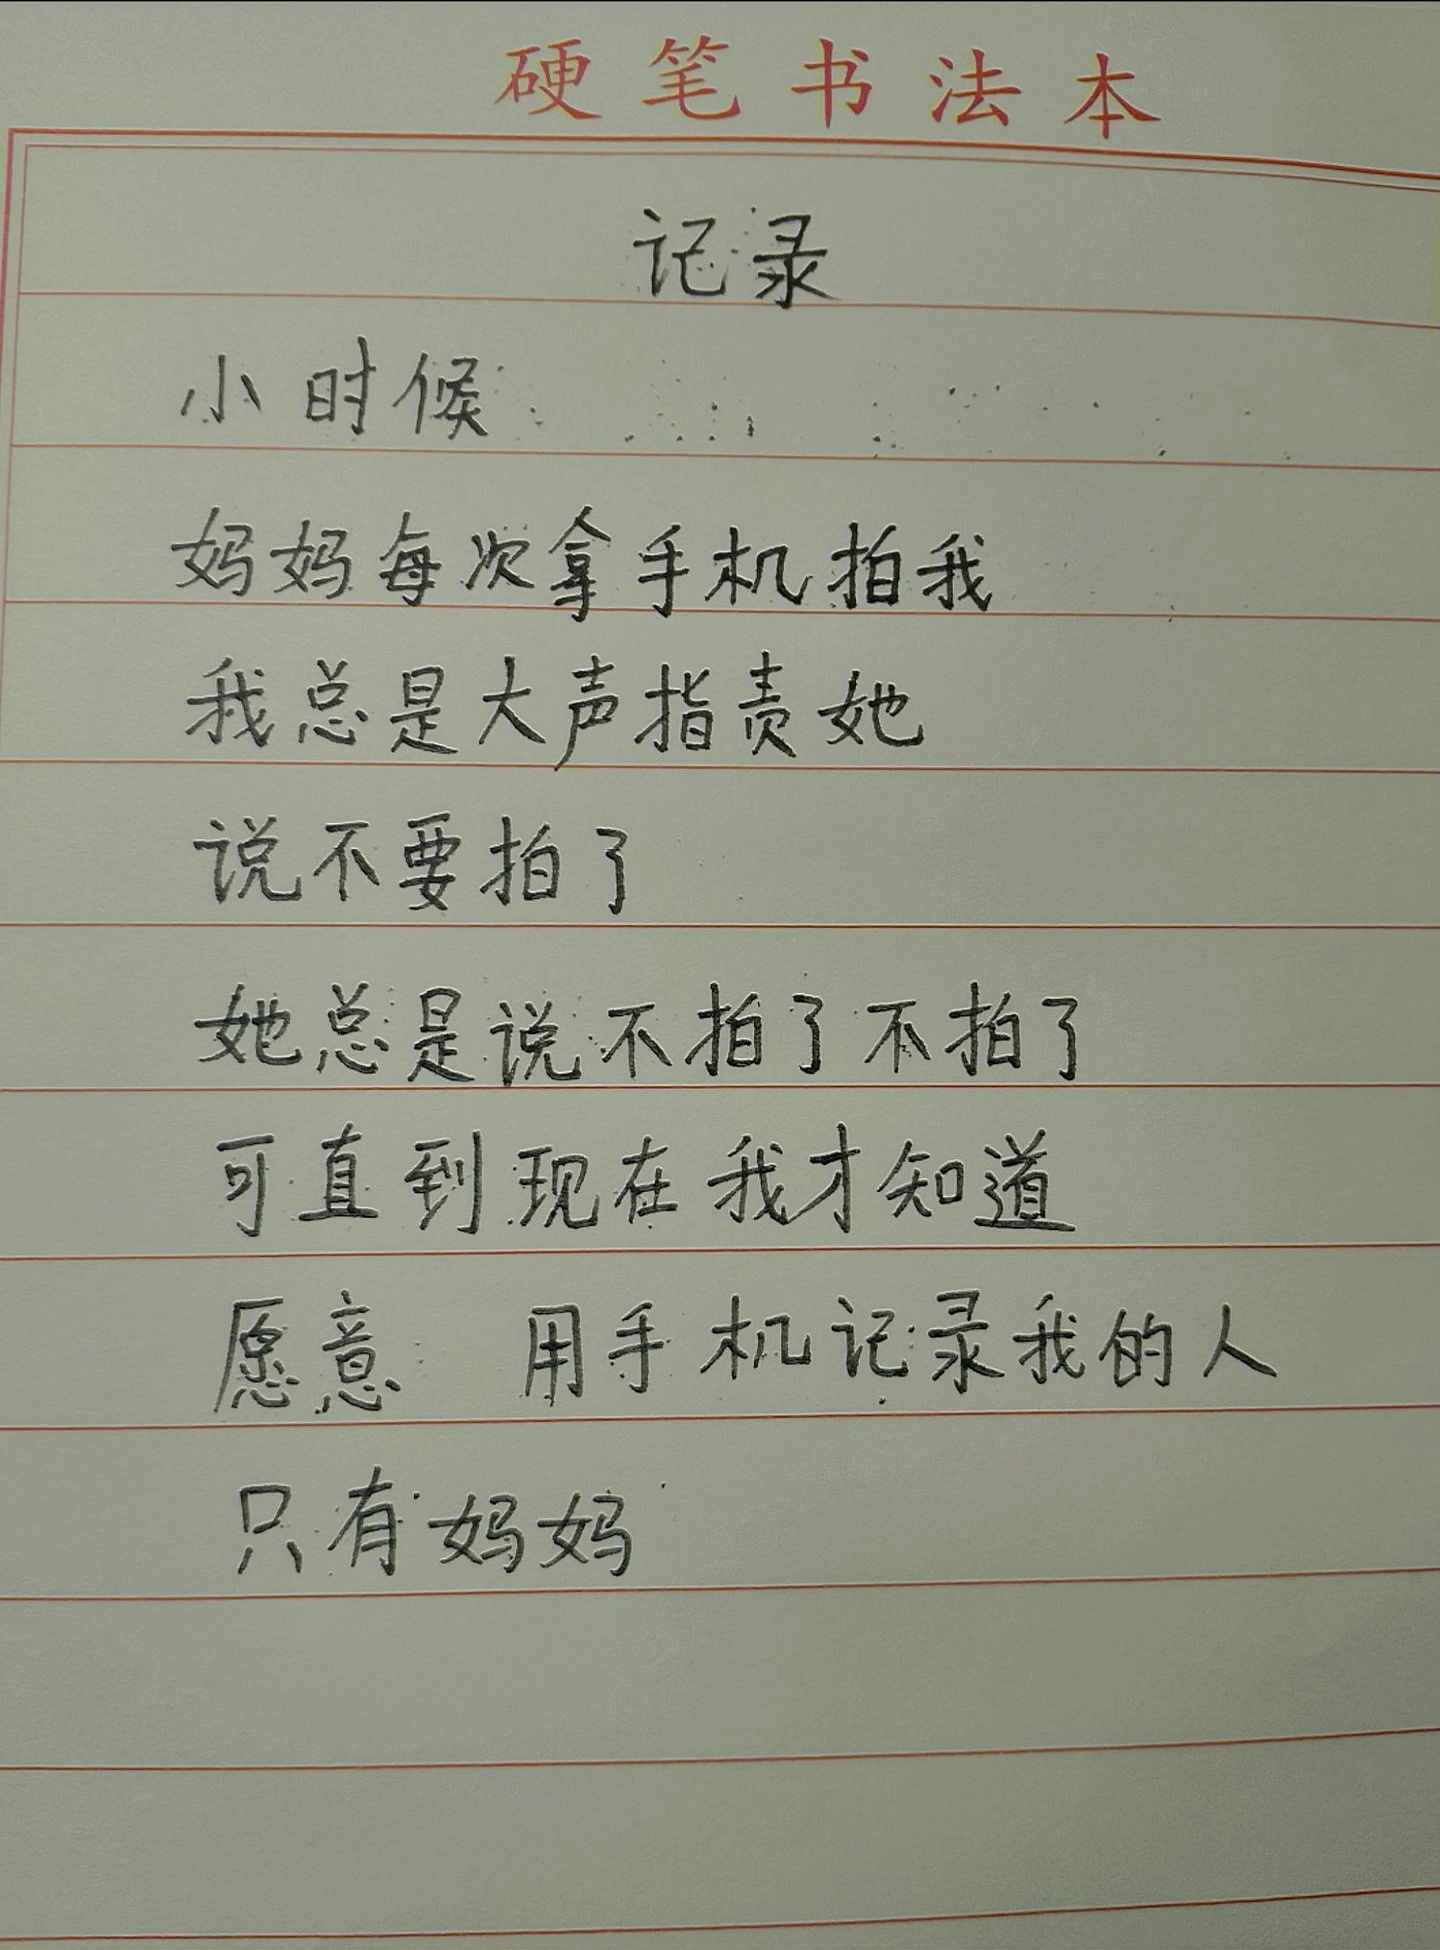 硬笔书法本
记录
小时候
妈妈每次拿手机拍我
我总是大声指责她
说不要拍了
她总是说不拍了不拍了
可直到现在我才知道
愿意 用手机记录我的人
只有妈妈